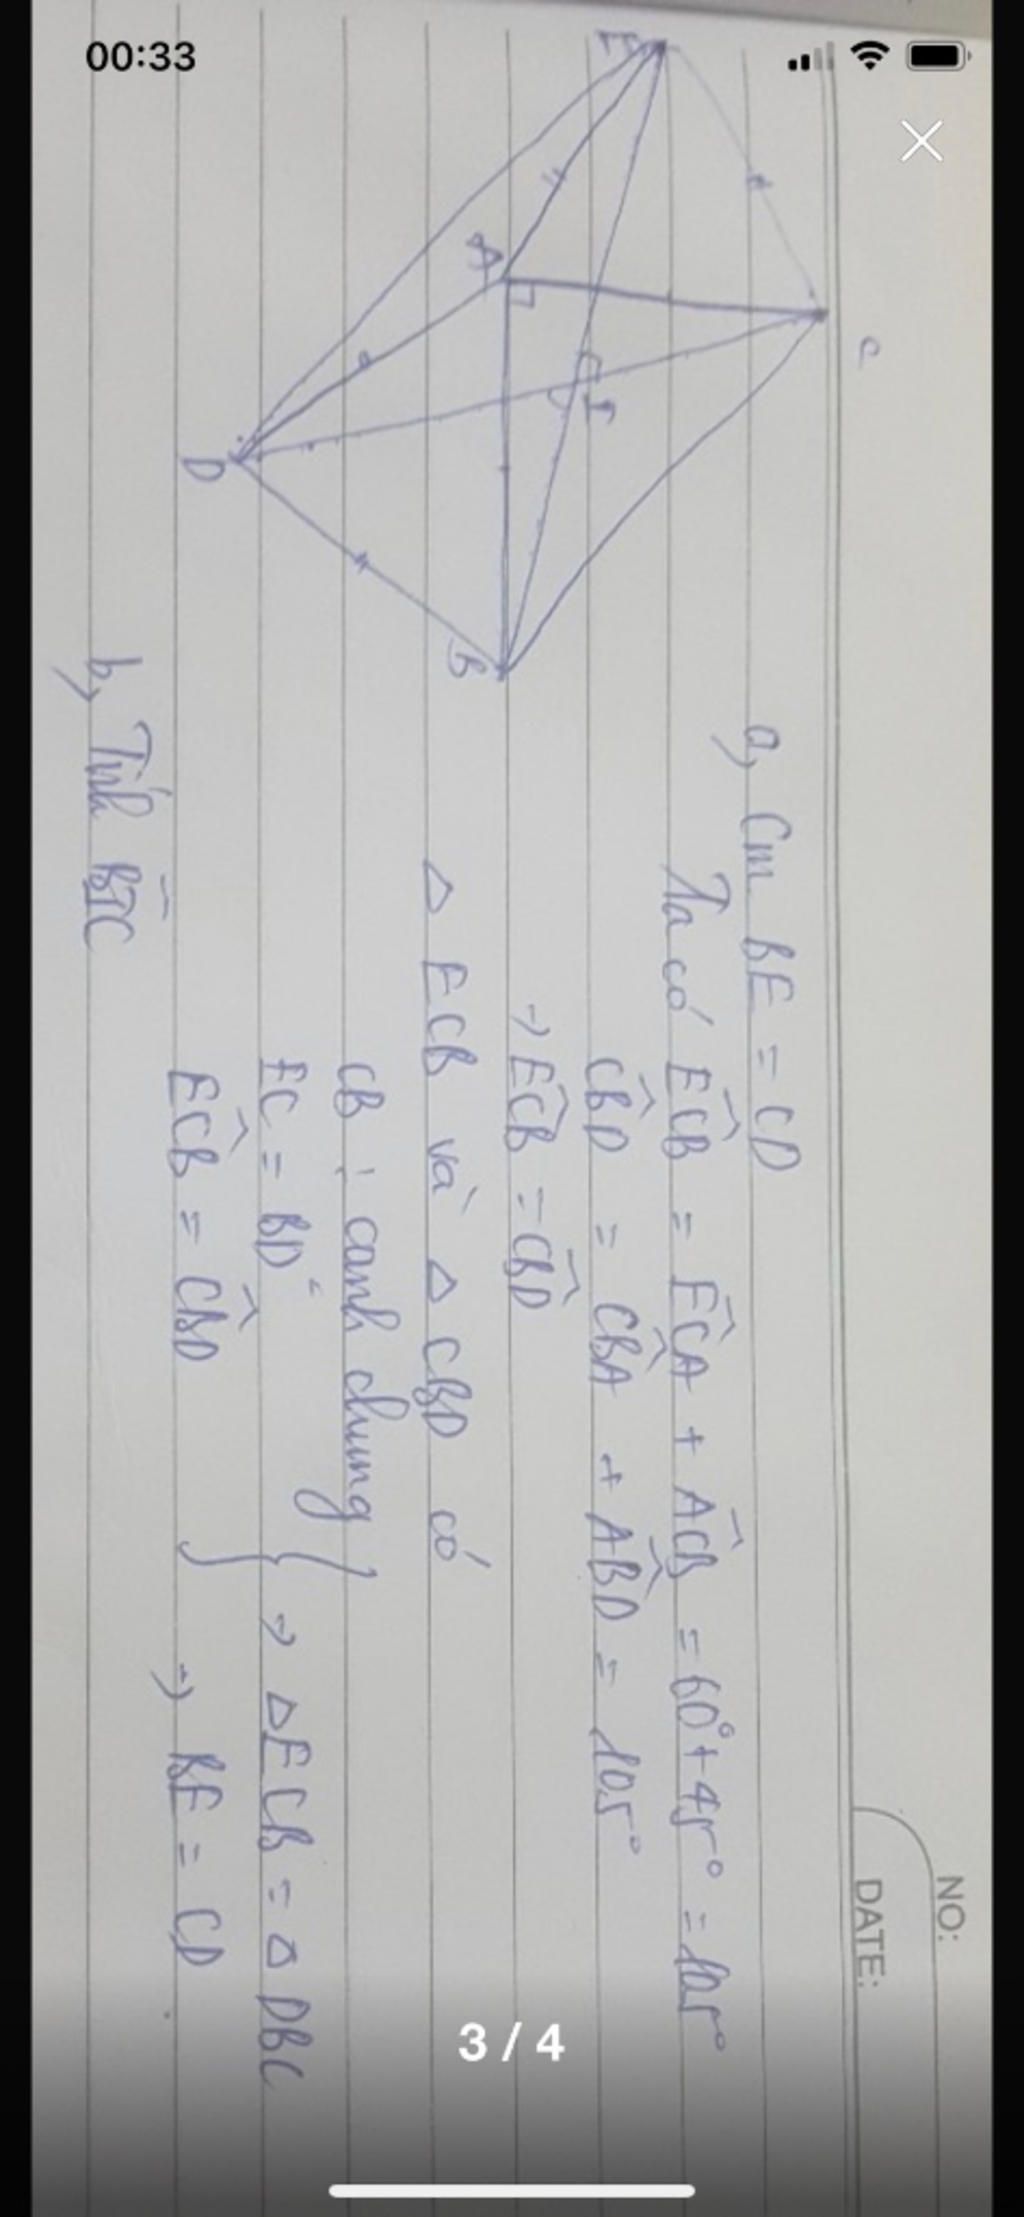 00:33
NO:
DATE:
C
E
A
I
D
B
a, Cm BE = CD
Ta có ECB = ECA + ACB = 60° + 45° = 105°
CBD = CBA + ABD = 105°
→ ECB = CBD
Δ ECB và Δ CBD có
CB : cạnh chung
EC = BD
ECB = CBD
→ ΔECB = Δ DBC
→ BE = CD
b, Tính BIC
3 / 4